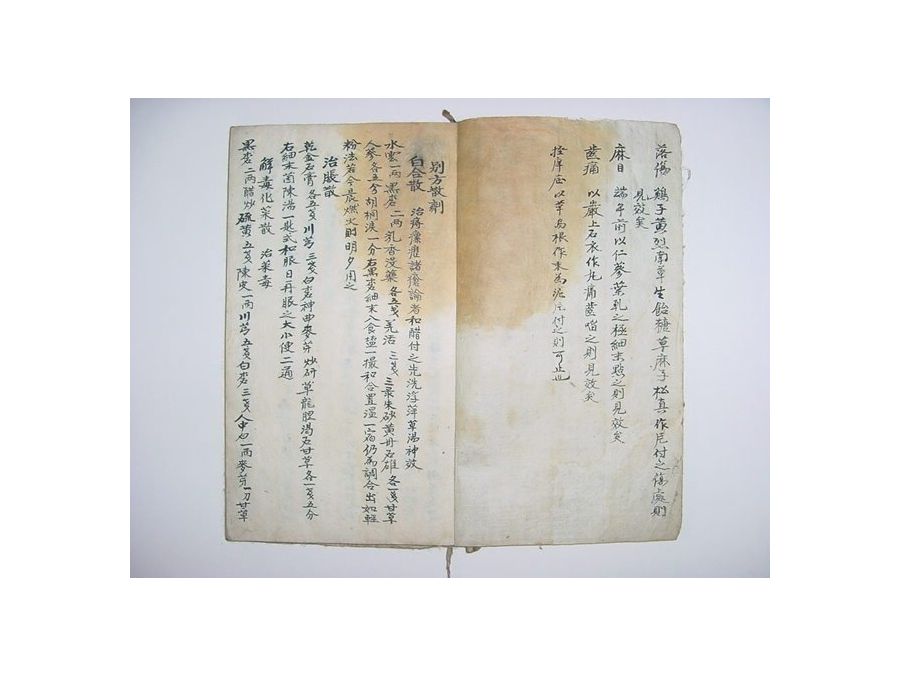 落傷 鷄子黃烈南草生飴糖草麻子松真作尼付之傷處則
見效矣
麻目 端午前以仁蔘葉乳之極細末點之則見效矣
齒痛 以巖上石衣作丸痛齒啗之則見效矣
以草烏根作末為泥 付之則可止也
別方散劑
白合散 治痔瘰癧諸瘡論者和醋付之先洗浮萍草湯神效
水 一兩黑 二兩 乳香沒藥 各五戔 羌活 三戔 三 朱砂黃丹石雄 各一戔 甘草
人蔘各五分胡桐淚一分右黑 細末入食塩一撮和合置溫一宿仍為調合出如輕
粉法若今晨燃火則明夕用之
治脹散
乾金石膏 各五戔 川芎 三戔 白 神曲麥芽 炒研 草龍胆滑石甘草各一戔五分
右細末茵陳湯一匙式和服日再服之大小便二通
解毒化菜散 治菜毒
黑 二兩醋炒 硫黃 五戔 陳皮 一兩 川芎 五戔 白 三戔 人中白 一兩 麥芽 一刀 甘草